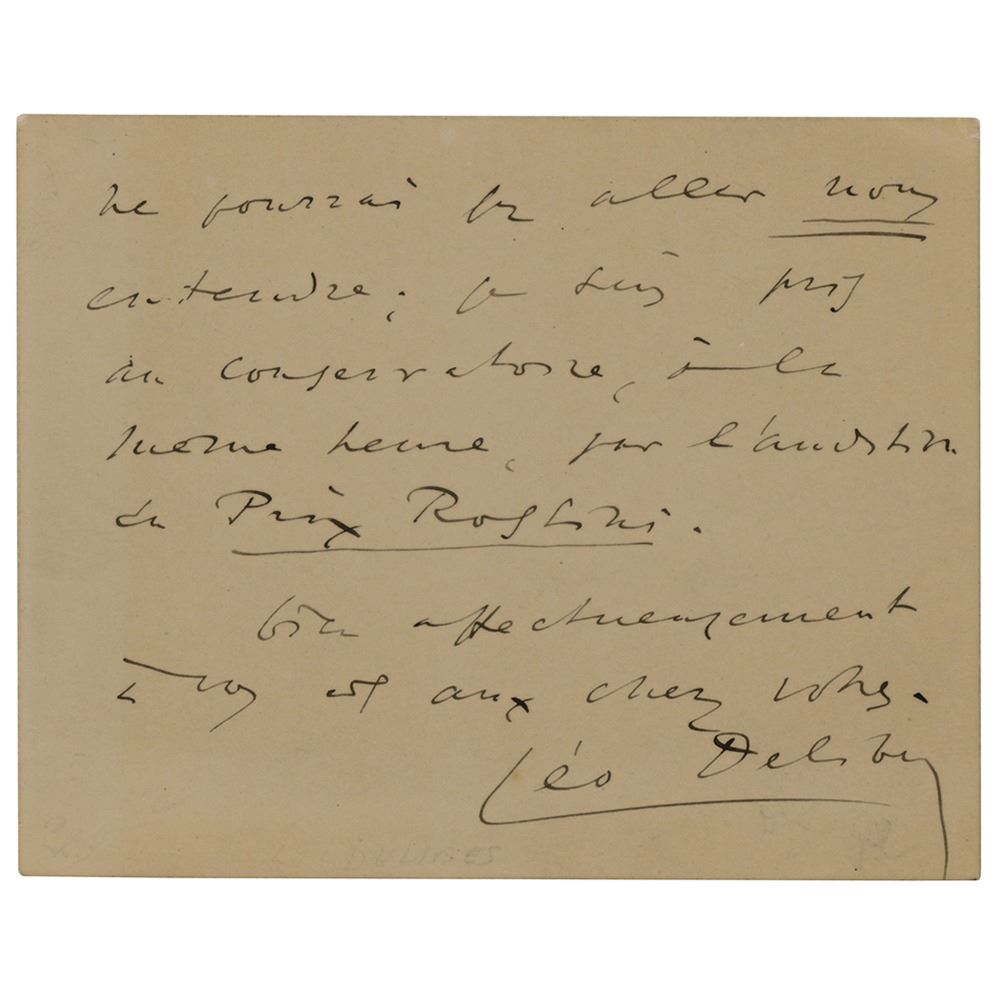 ne pourrai je aller nous
entendre ; je suis pris
au Conservatoire, à la
même heure, par l'audition
du Prix Rossini.
bien affectueusement
à vous et aux chers vôtres.
Léo Delibes
DELIBES